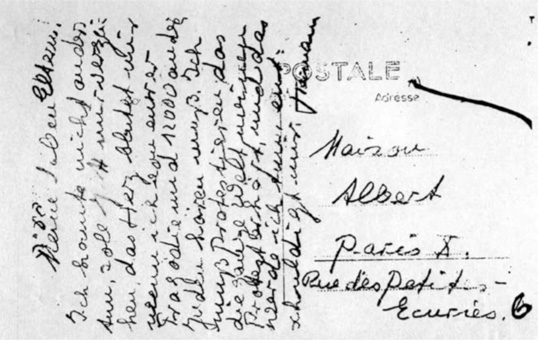 Meine lieben Eltern!
Ich konnte nicht anders
tun, soll G'tt mir verzei-
hen, das Herz blutet mir
wenn ich von eurer
Tragödie und 12000 anderer
Juden hören muß. Ich
muß Protestieren das
die ganze Welt meinen
Protest erhört, und das
werde ich tun, ent-
schuldigt mir. Hermann
POSTALE
Adresse
Maison
Albert
Paris X.
Rue des Petites-
Ecuries. 6